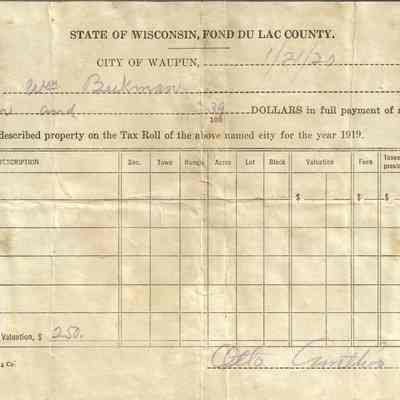 STATE OF WISCONSIN, FOND DU LAC COUNTY.
CITY OF WAUPUN, 1/21/20
Wm Beekman
and 39/100 DOLLARS in full payment of
described property on the Tax Roll of the above named city for the year 1919.
DESCRIPTION Sec. Town Range Acres Lot Block Valuation Fees Taxes
$ $
Valuation, $ 250.
Otto
& Co.